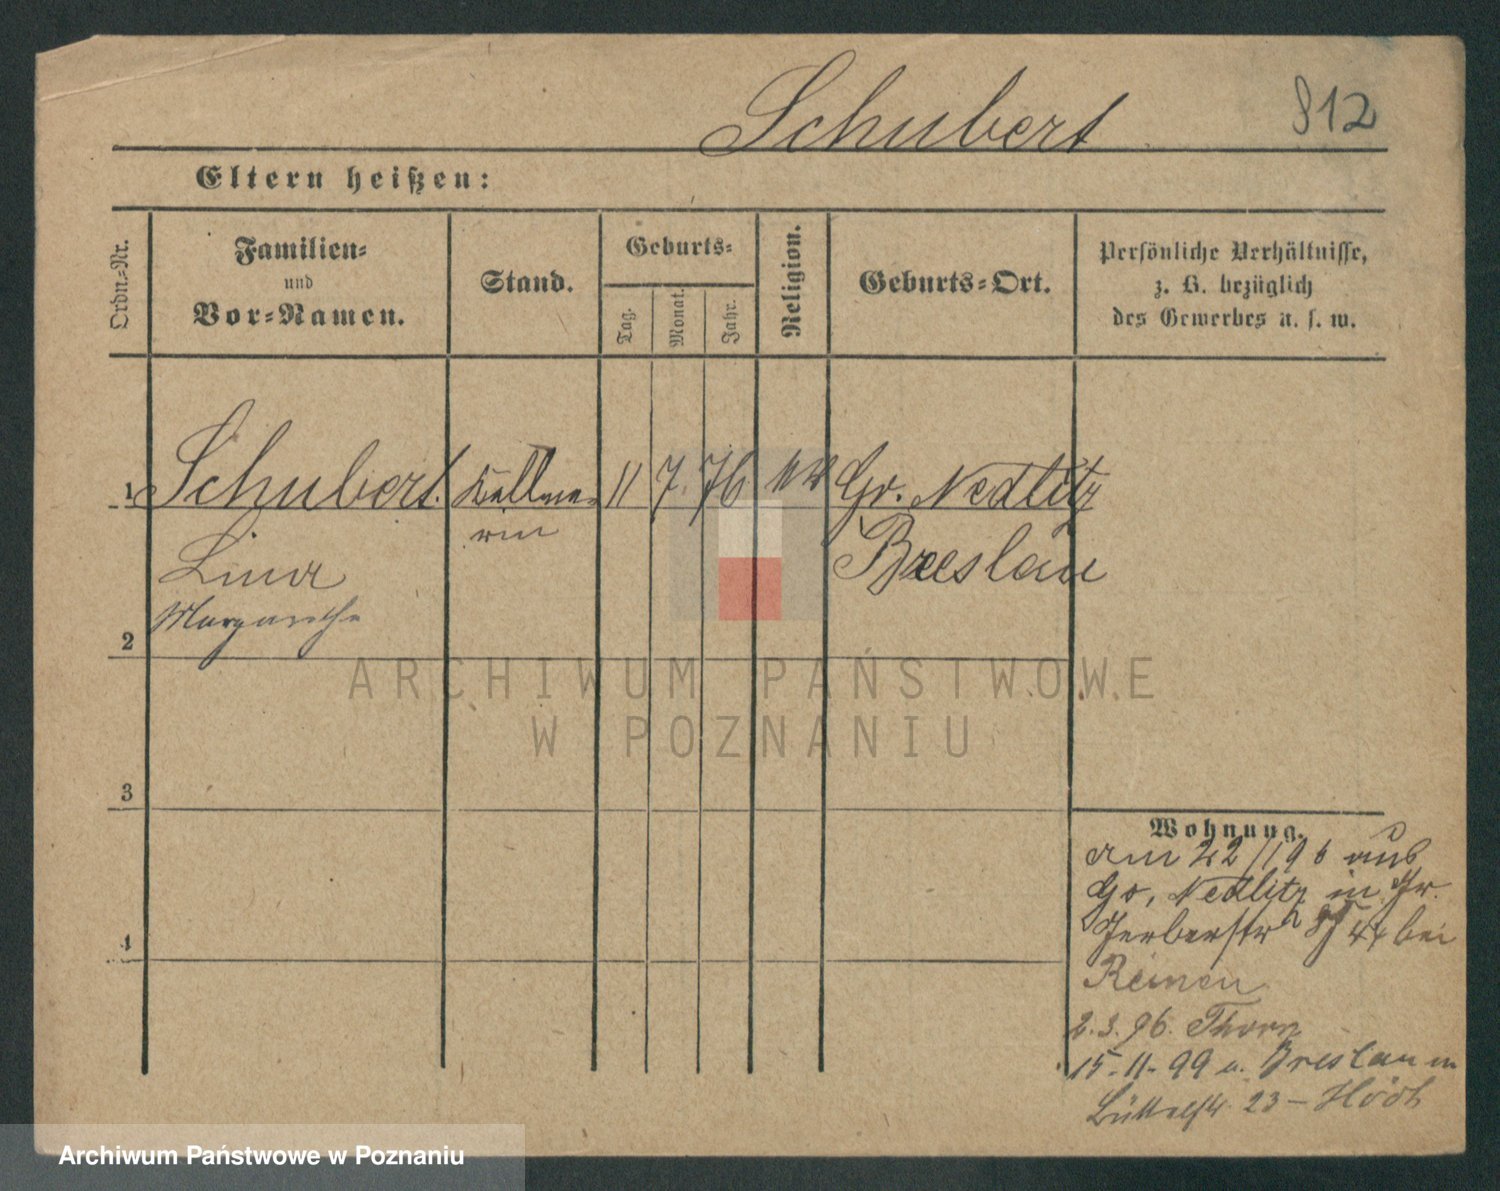 Schubert 812
Eltern heißen:
Ordn.-Nr.
Familien-
und
Vor-Namen.
Stand.
Geburts-
Tag.
Monat.
Jahr.
Religion.
Geburts-Ort.
Persönliche Verhältnisse,
z. B. bezüglich
des Gewerbes u. s. w.
1 Schubert. Kellne- 11 7. 76 Gr. Nedlitz
rin Breslau
Lina
Margarethe
2
ARCHIWUM PAŃSTWOWE
W POZNANIU
3
Wohnung.
am 22/1 96 aus
Gr. Nedlitz in Gr.
Gerberstr bei
Reimen
2.3.96. Thorn
15.11.99 v. Breslau in
23 –
4
Archiwum Państwowe w Poznaniu